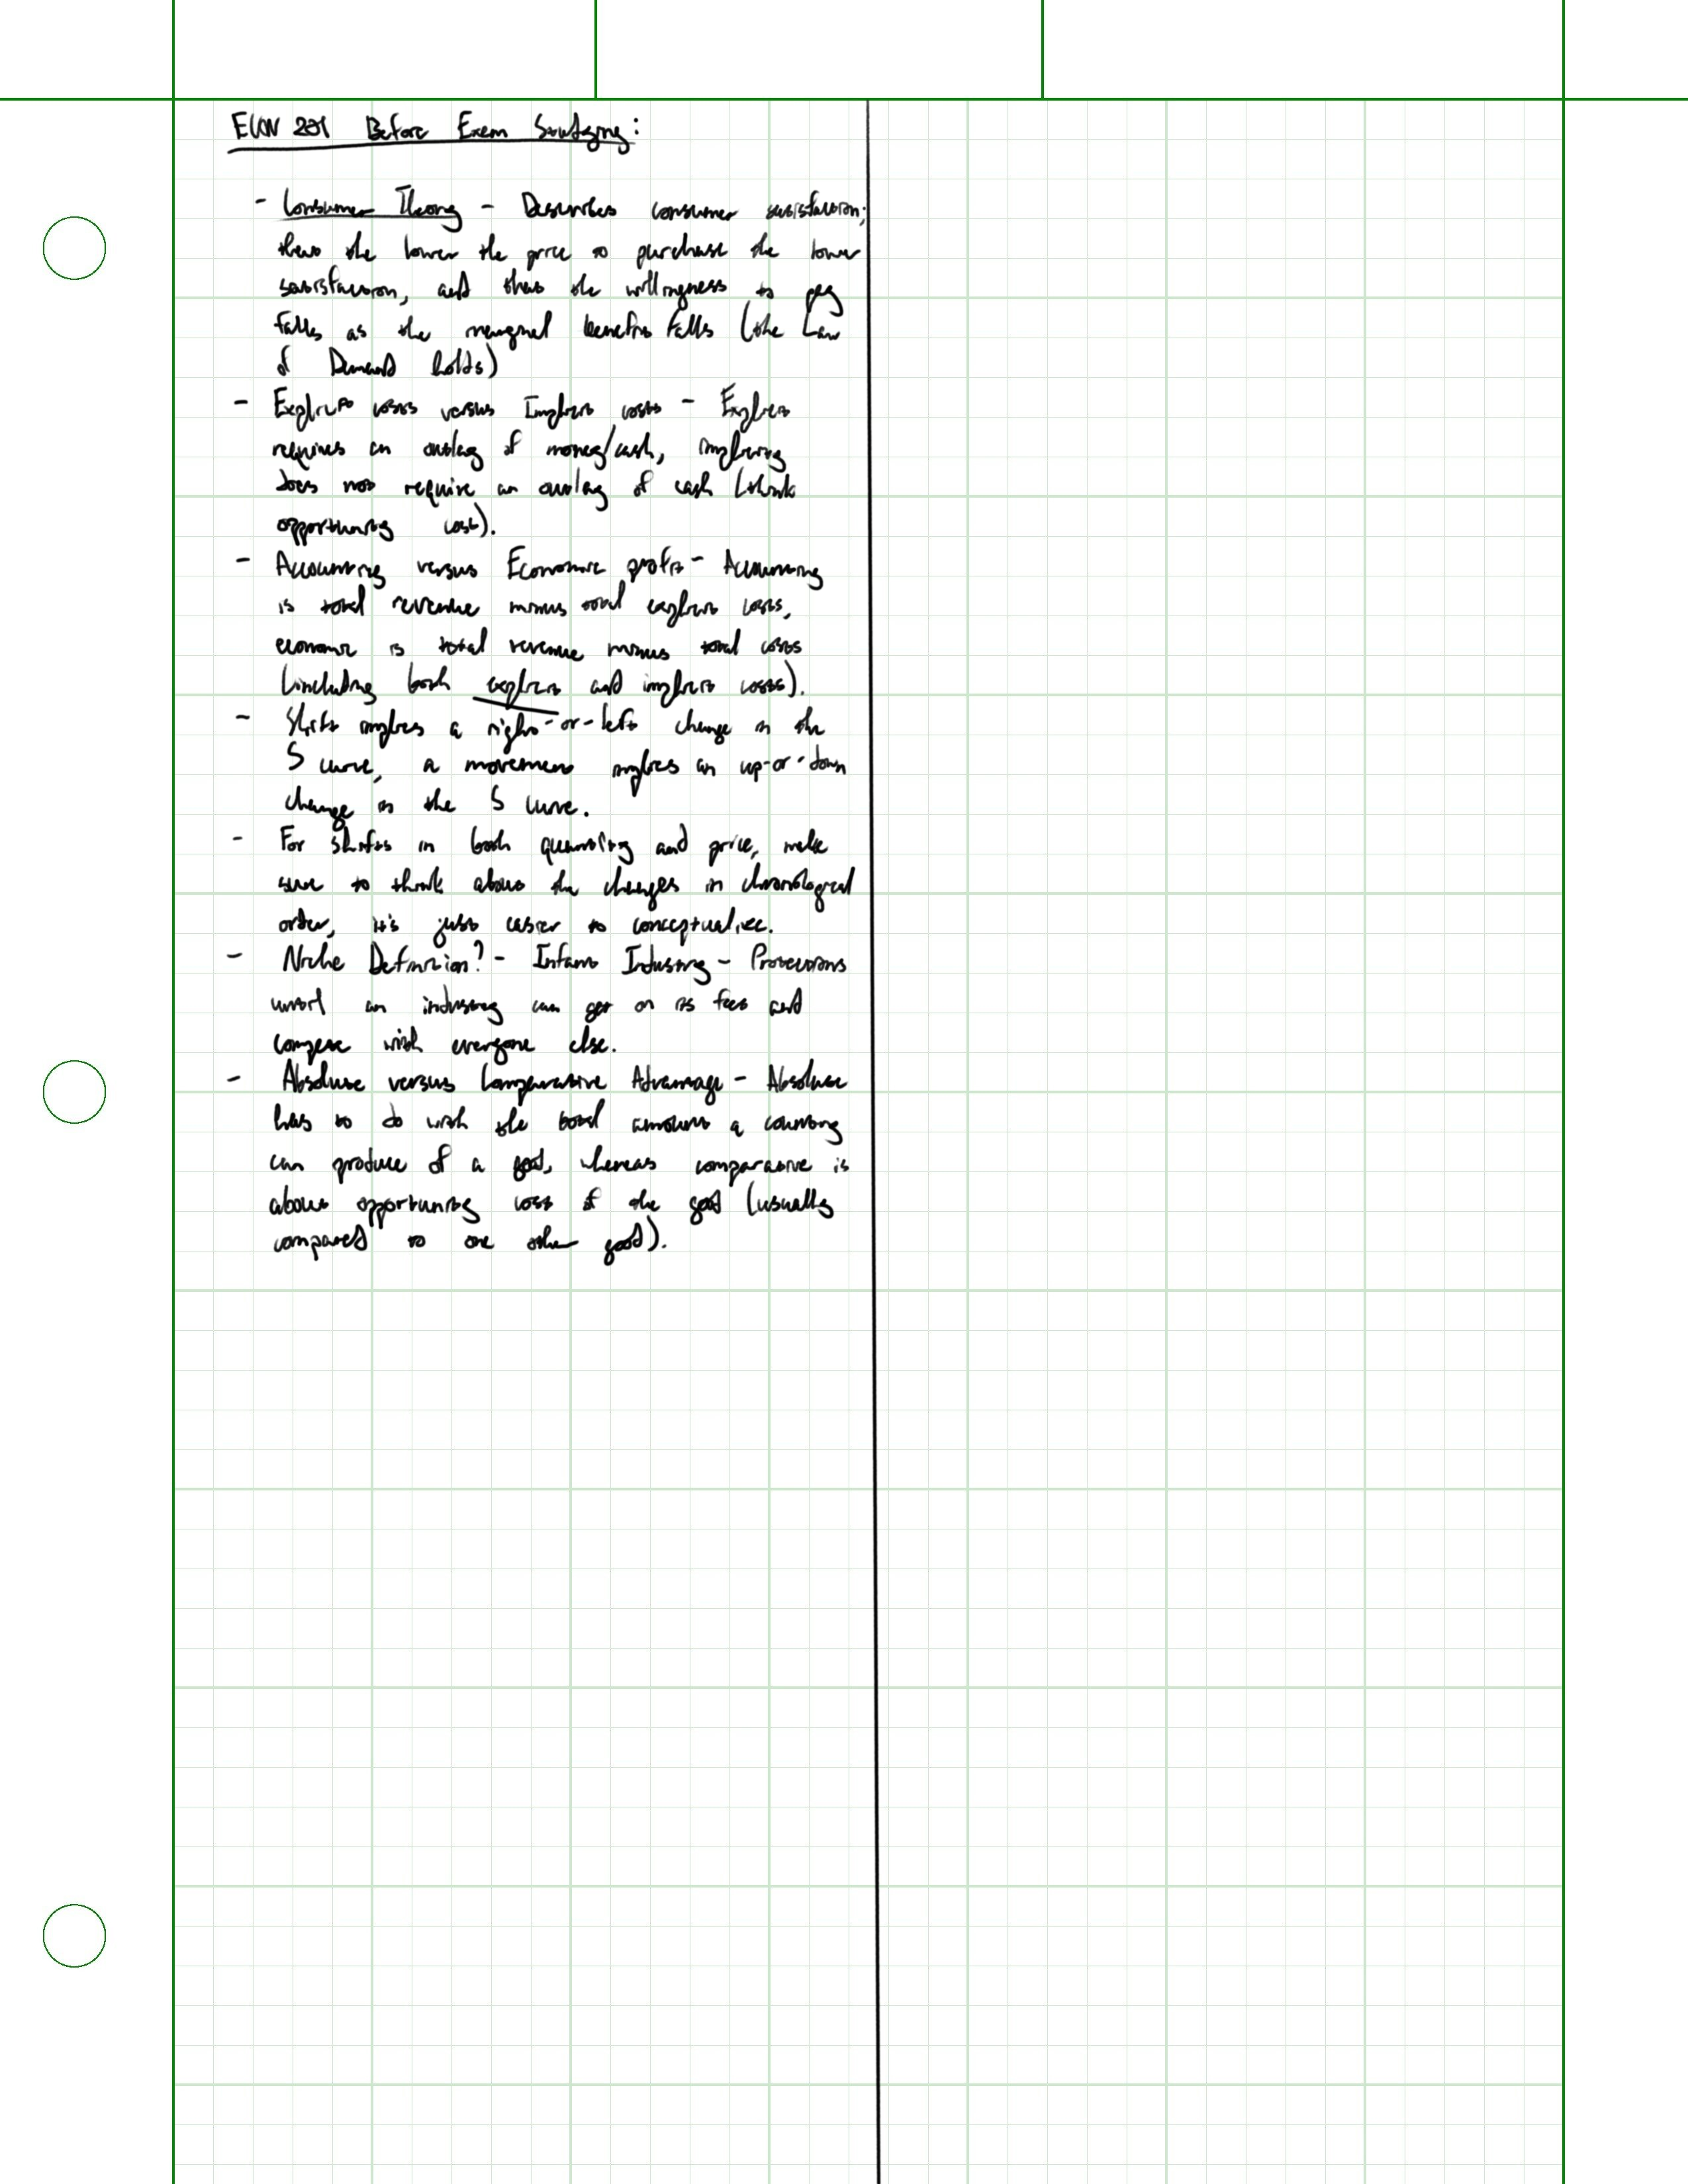 ECON 201 Before Exam Studying:
- Consumer Theory - Describes consumer satisfaction;
that the lower the price to purchase the lower
satisfaction, and that the willingness to pay
falls as the marginal benefit falls (the Law
of Demand holds)
- Explicit costs versus Implicit costs - Explicit
requires an outlay of money/cash, implicit
does not require an outlay of cash (think
opportunity cost).
- Accounting versus Economic profit - Accounting
is total revenue minus total explicit costs,
economic is total revenue minus total costs
(including both explicit and implicit costs).
- Shift implies a right-or-left change in the
S curve, a movement implies an up-or-down
change in the S curve.
- For shifts in both quantity and price, make
sure to think about the changes in chronological
order, it's just easier to conceptualize.
- Niche Definition? - Infant Industry - Protections
until an industry can get on its feet and
compete with everyone else.
- Absolute versus Comparative Advantage - Absolute
has to do with the total amount a country
can produce of a good, whereas comparative is
about opportunity cost of the good (usually
compared to one other good).